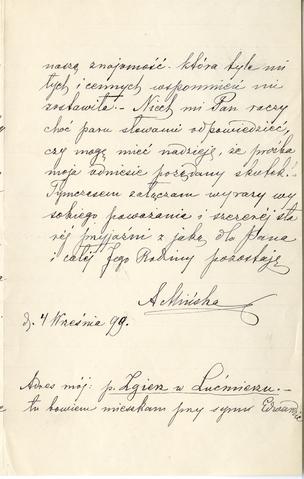 naszą znajomość która tyle mi
tych i cennych wspomnień mi
zostawiła. – Niech mi Pan raczy
choć paru słowami odpowiedzieć,
czy mogę mieć nadzieję, że prośba
moja odniesie pożądany skutek.
Tymczasem załączam wyrazy wy
sokiego poważania i szczerej sta
rej przyjaźni z jaką dla Pana
i całej Jego Rodziny pozostaję
A Mińska
d. 4 Września 99.
Adres mój: p. Zgierz w Lućmierzu. –
tu bowiem mieszkam przy synu Edwardzie